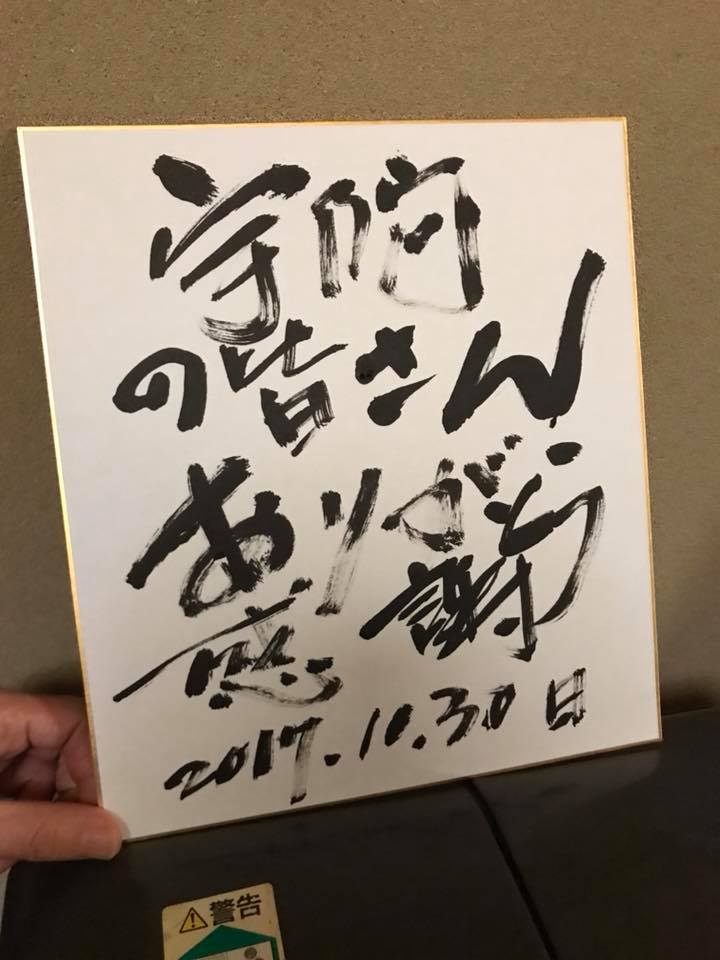 の皆さん
ありがとう
感謝
2017.10.30日
警告